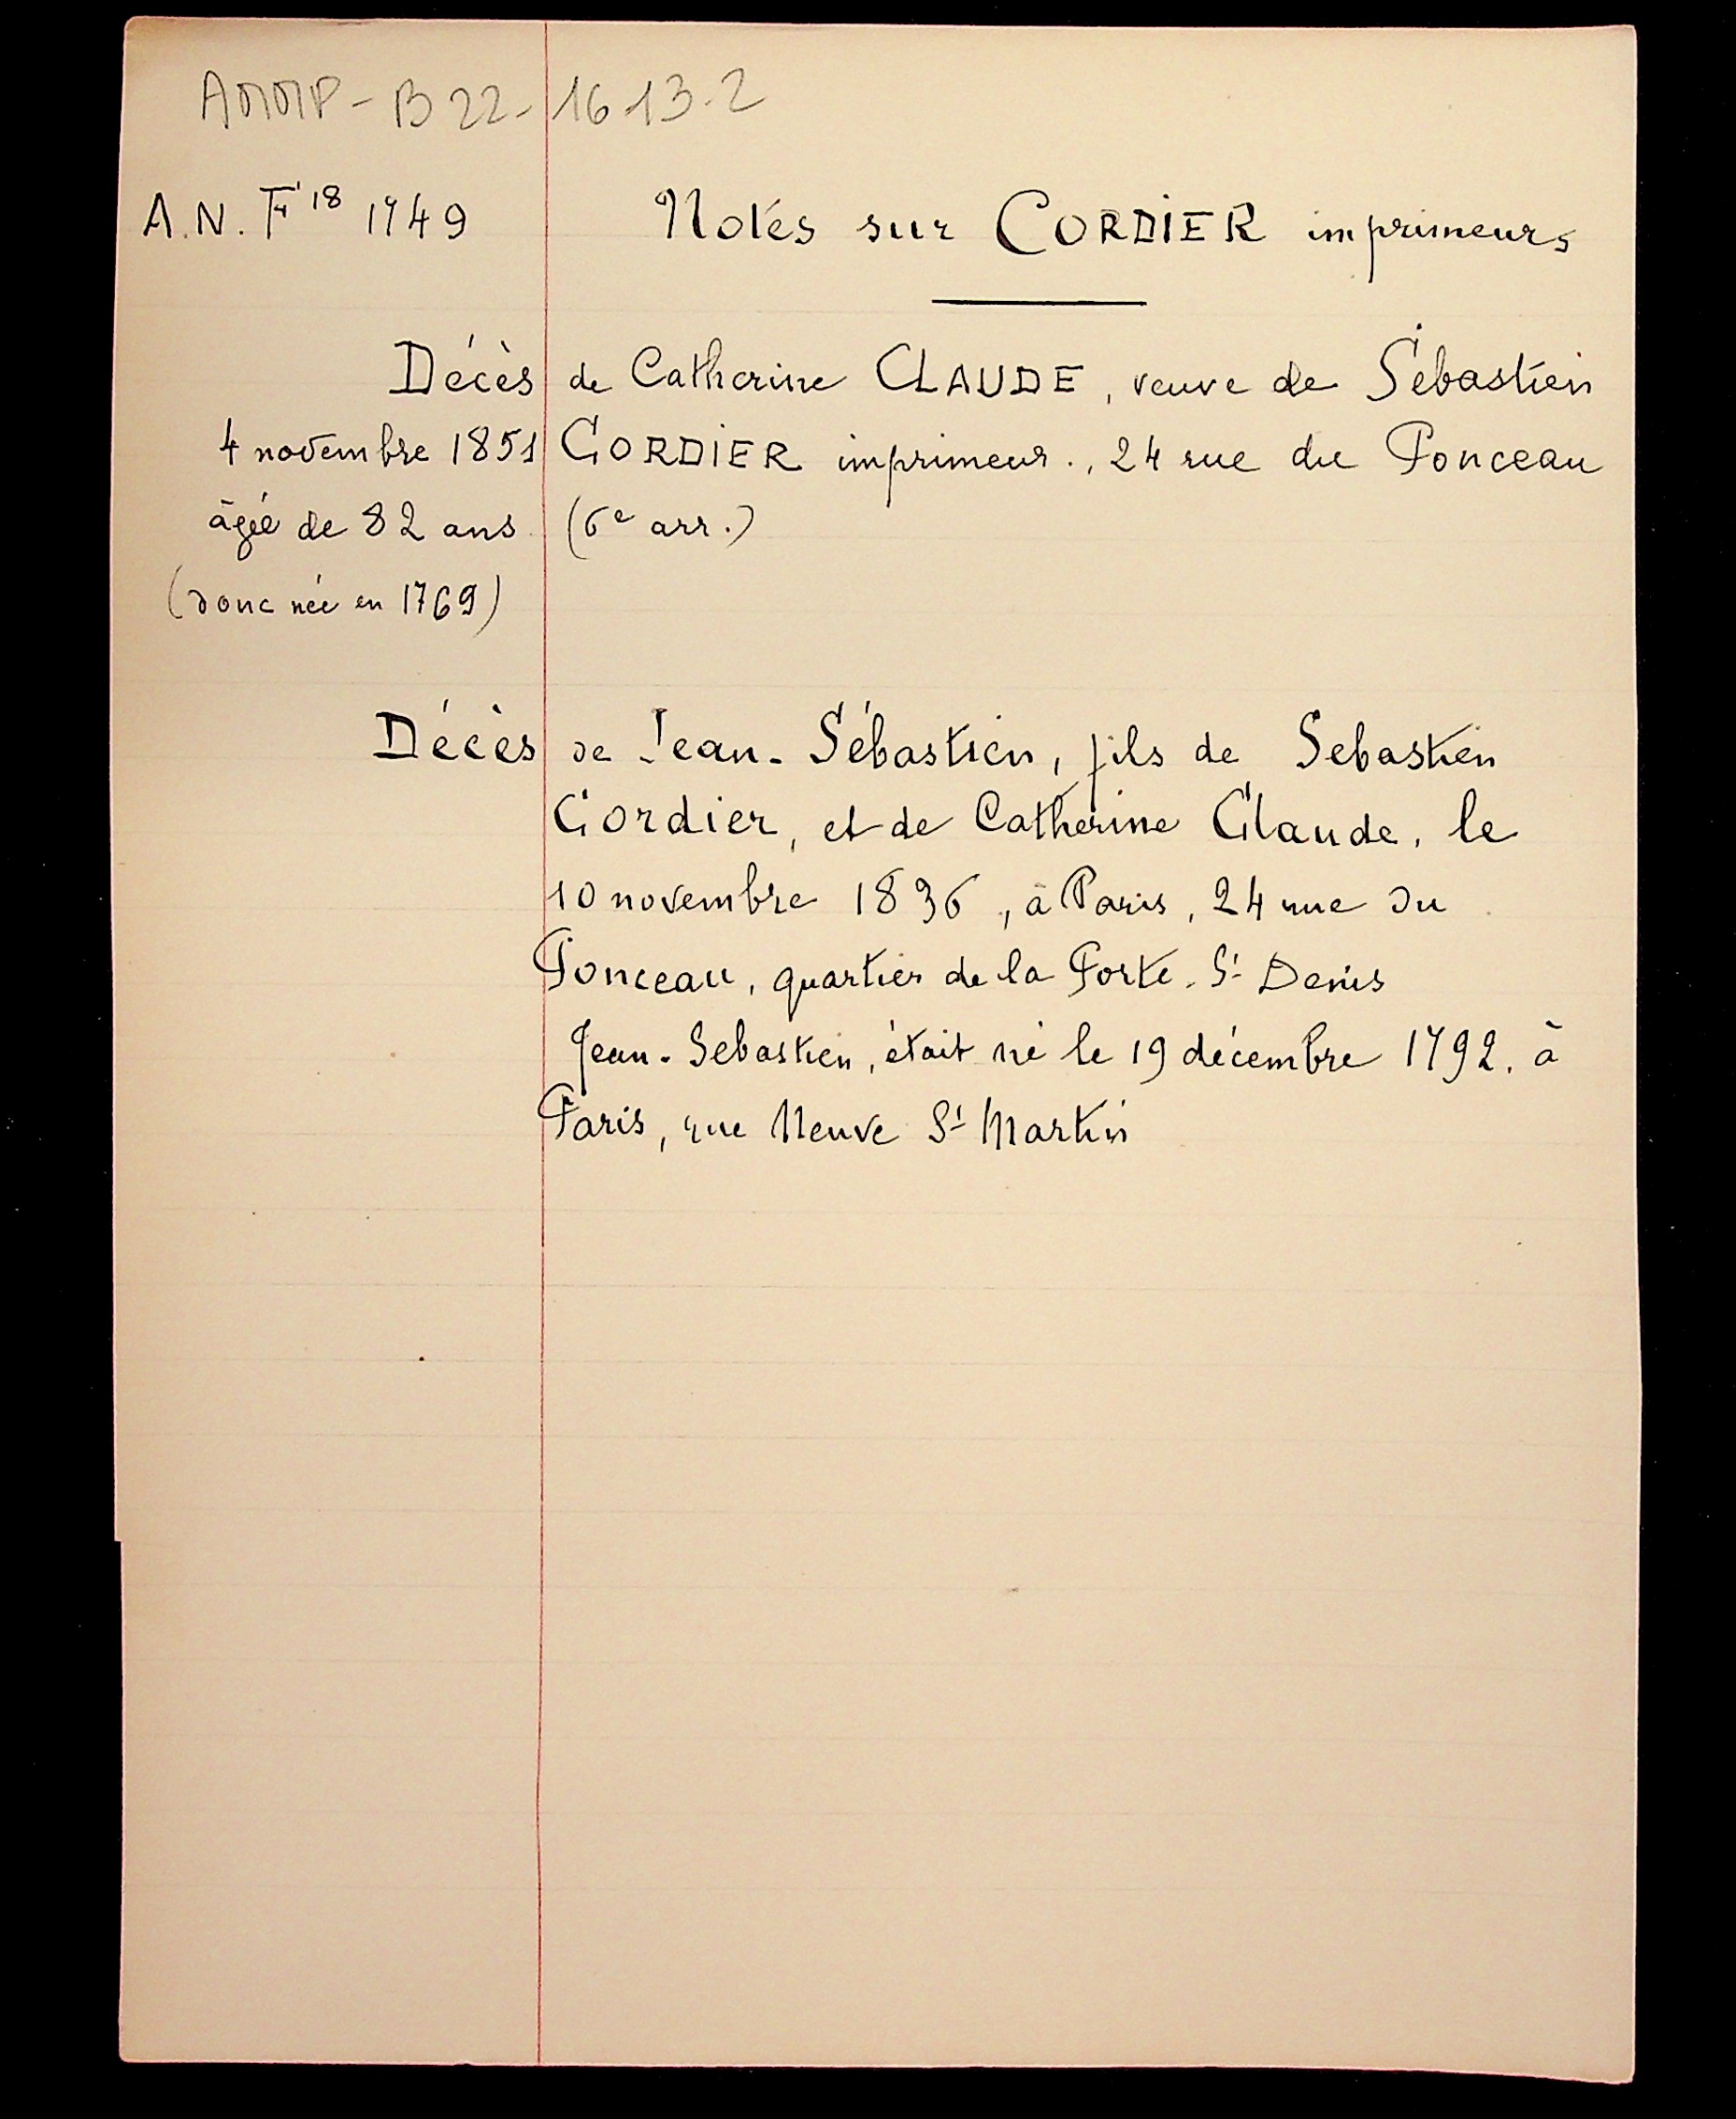 AMMP - B 22 - 16-13-2
A.N. F 18 1749 Notes sur CORDIER imprimeurs
Décès de Catherine CLAUDE, veuve de Sébastien
4 novembre 1851 CORDIER imprimeur., 24 rue du Ponceau
âgée de 82 ans (6e arr.)
(donc née en 1769)
Décès de Jean-Sébastien, fils de Sebastien
Cordier, et de Catherine Claude, le
10 novembre 1836, à Paris, 24 rue du
Ponceau, quartier de la Porte-St Denis
Jean-Sebastien, était né le 19 décembre 1792, à
Paris, rue Neuve St Martin